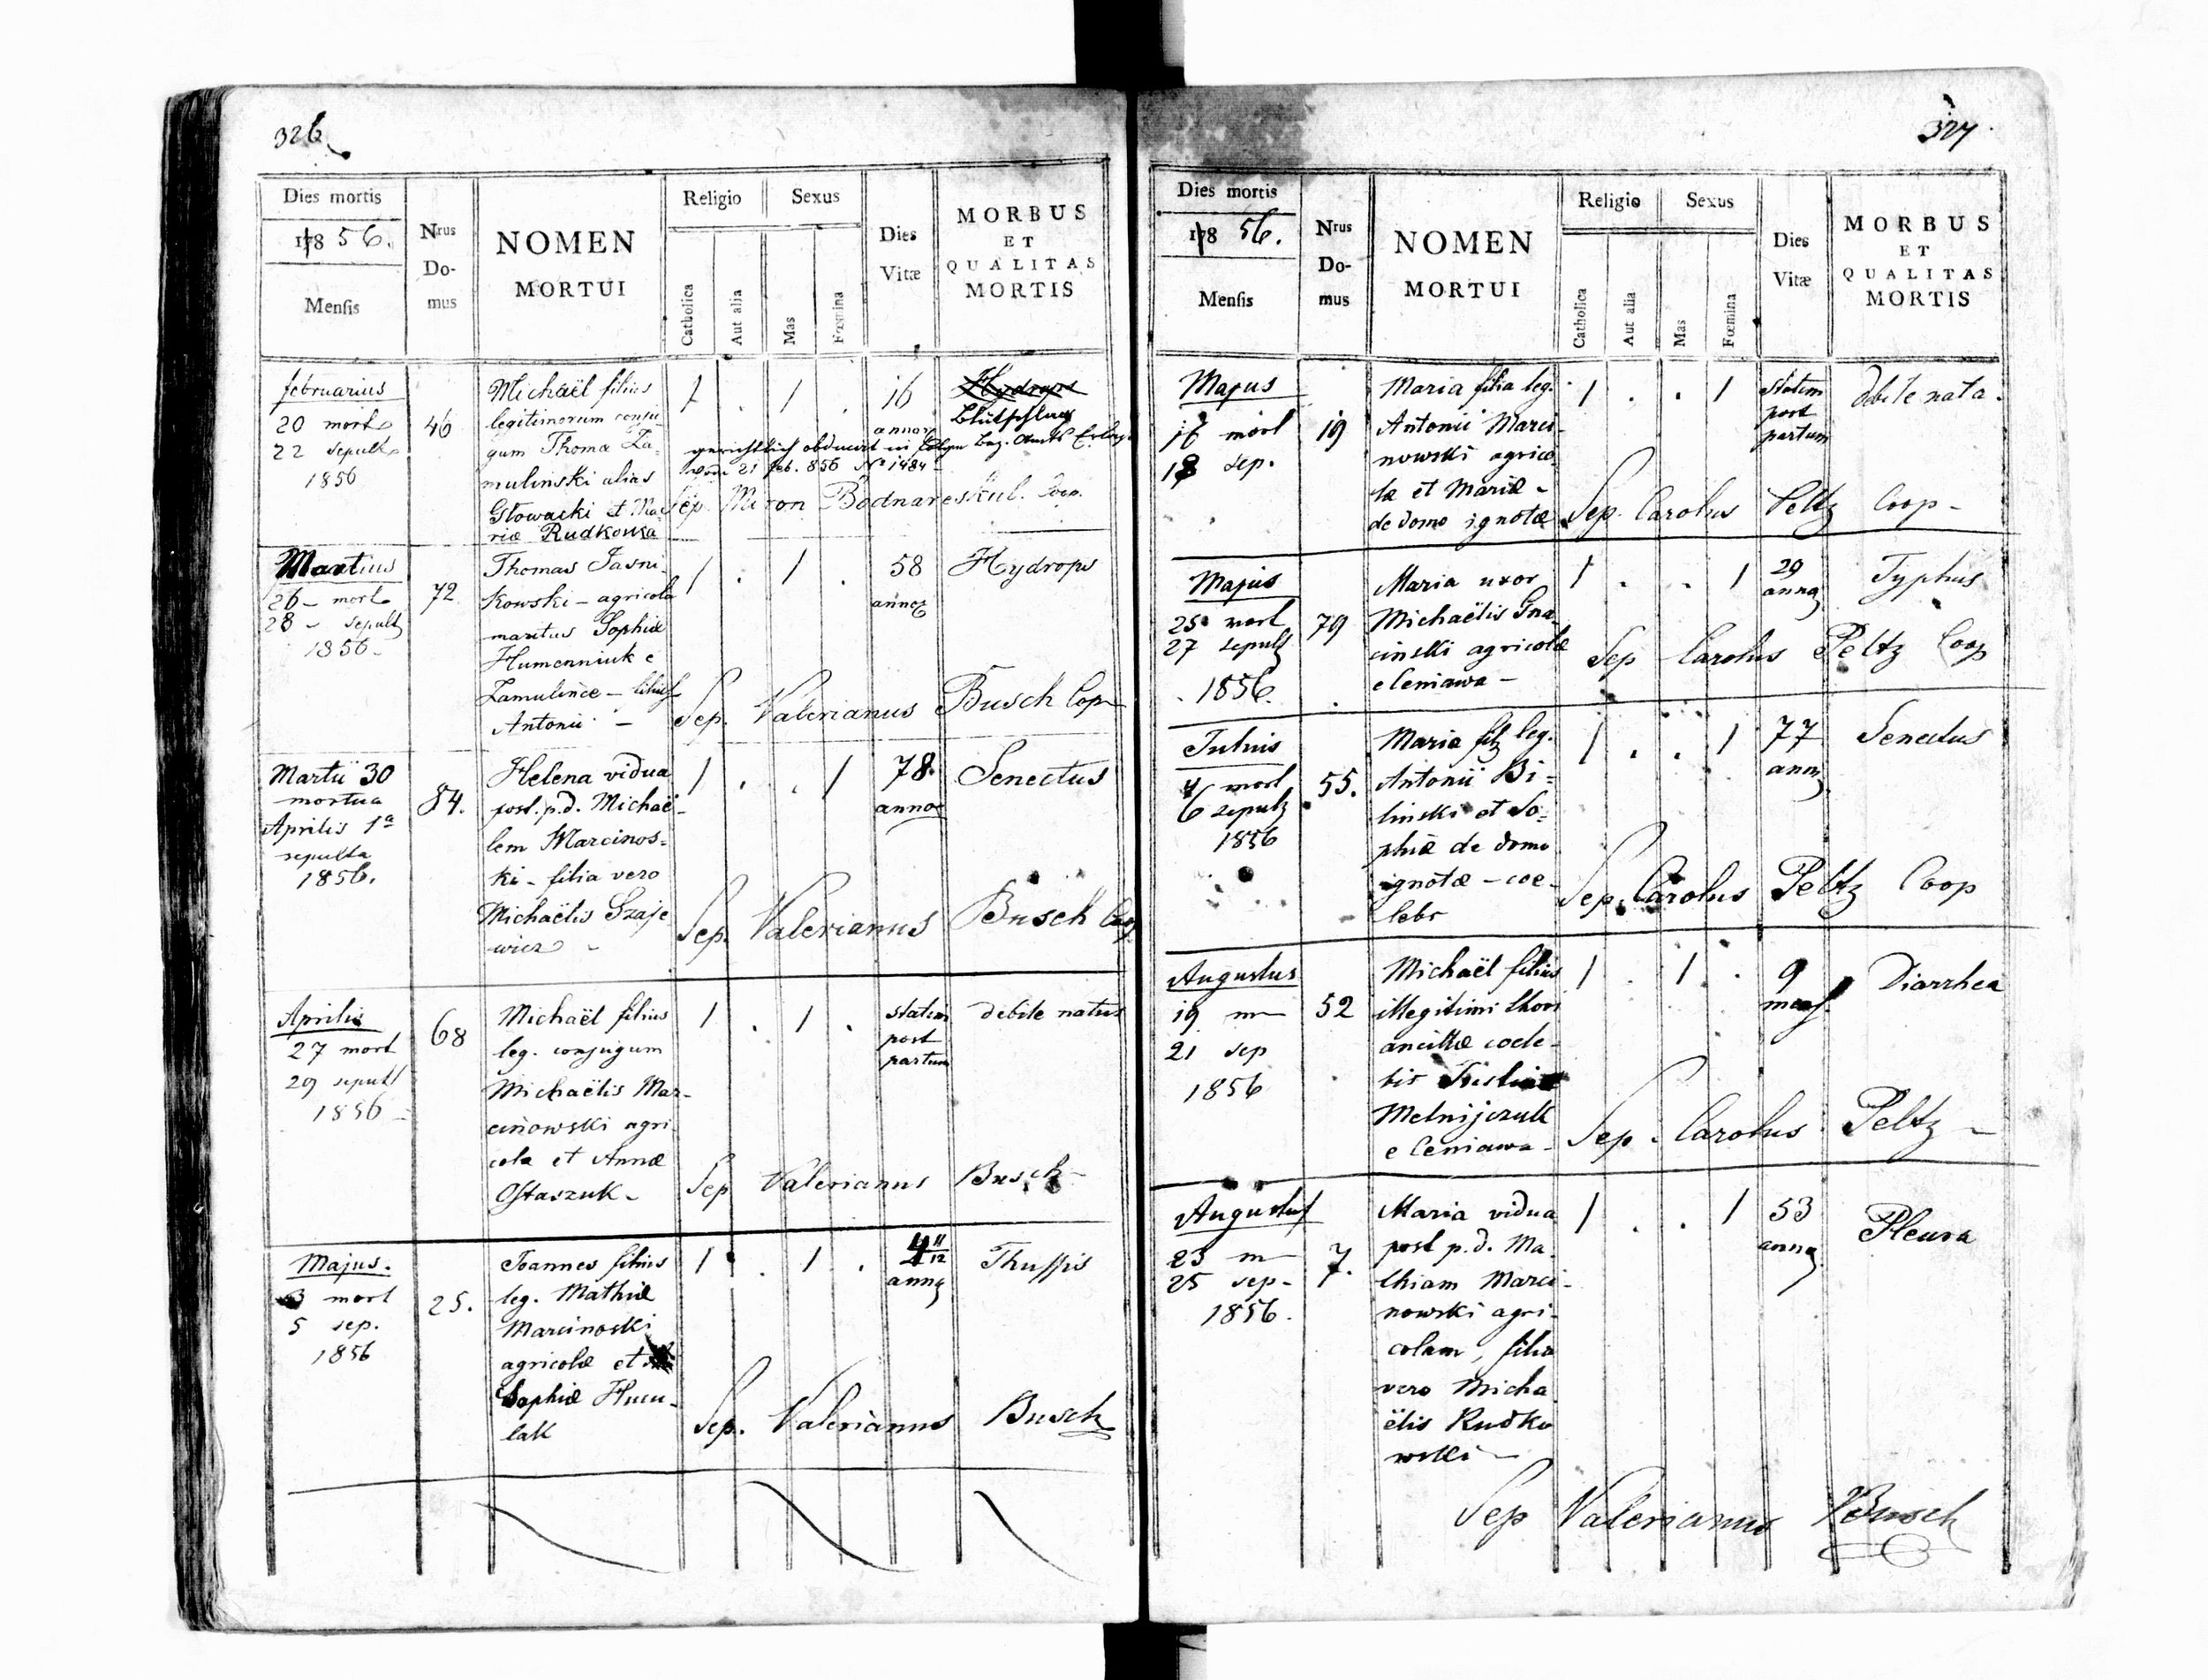 326
Dies mortis
1856.
Mensis
Nrus
Do-
mus
NOMEN
MORTUI
Religio
Sexus
Catholica
Aut alia
Mas
Fœmina
Dies
Vitæ
MORBUS
ET
QUALITAS
MORTIS
februarius
20 mort
22 sepult
1856
46
Michaël filius
legitimorum conju
gum Thomæ Za-
mulinski alias
Głowacki et Ma
riæ Rudkoska
1 . 1 .
16
annor
Hydrops
Blutschlag
gerichtlich obducirt in Folge Bez. Amts Erlass
vom 21 feb. 856 No 1484
Sep. Miron Bodnareskul. Coop.
Martius
26 - mort
28 - sepult
1856 -
72
Thomas Jasni-
kowski - agricola
maritus Sophiæ
Humenniuk e
Zamulince - filius
Antonii -
1 . 1 .
58
annor
Hydrops
Sep. Valerianus Busch Cop
Martii 30
mortua
Aprilis 1a
sepulta
1856.
84.
Helena vidua
post. p.d. Michaë-
lem Marcinos-
ki - filia vero
Michaëlis Szaje
wicz -
1 . . 1
78.
annor
Senectus
Sep. Valerianus Busch Coop
Aprilis
27 mort
29 sepult
1856 -
68
Michaël filius
leg. conjugum
Michaëlis Mar-
cinowski agri-
cola et Annæ
Ostaszuk -
1 . 1 .
statim
post
partum
debile natus
Sep Valerianus Busch -
Majus.
3 mort
5 sep.
1856
25.
Joannes filius
leg. Mathiæ
Marcinoski
agricolæ et
Sophiæ Hucu-
lak
1 . 1 .
4 11/12
annor
Thussis
Sep. Valerianus Busch
327
Dies mortis
1856.
Mensis
Nrus
Do-
mus
NOMEN
MORTUI
Religio
Sexus
Catholica
Aut alia
Mas
Fœmina
Dies
Vitæ
MORBUS
ET
QUALITAS
MORTIS
Majus
17 mort
18 sep.
19
Maria filia leg.
Antonii Marci-
nowski agrico-
læ et Mariæ -
de domo ignotæ
1 . . 1
statim
post
partum
debile nata.
Sep. Carolus Peltz Coop -
Majus
25 mort
27 sepult
1856.
79
Maria uxor
Michaëlis Gna-
cinski agricolæ
e Ceniawa -
1 . . 1
29
annor
Typhus
Sep Carolus Peltz Coop
Julius
4 mort
6 sepult
1856
55.
Maria fil leg.
Antonii Bi=
linski et So=
phiæ de domo
ignotæ - coe-
lebs
1 . . 1
77
ann
Senectus
Sep. Carolus Peltz Coop
Augustus
19 m
21 sep
1856
52
Michaël filius
illegitimi thori
ancillæ coele-
bis
Melnijczuk
e Ceniawa -
1 . 1 .
9
mens.
Diarrhea
Sep. Carolus Peltz -
Augustus
23 m
25 sep -
1856.
7.
Maria vidua
post p.d. Ma-
thiam Marci-
nowski agri-
colam, filia
vero Micha
ëlis Rudko
wski -
1 . . 1
53
annor
Pleura
Sep Valerianus Busch